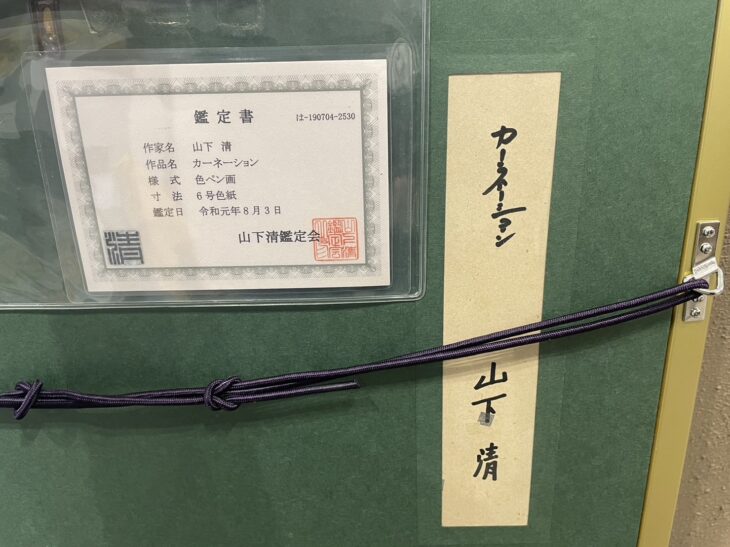 鑑定書
は-190704-2530
作家名 山下 清
作品名 カーネーション
様 式 色ペン画
寸 法 6号色紙
鑑定日 令和元年8月3日
山下清鑑定会
清
カーネーション
山下 清